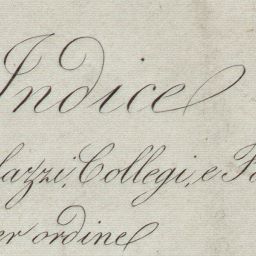 Indice
lazzi, Collegi, e Pa
er ordine